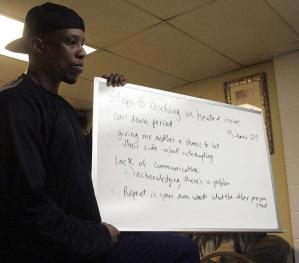 Steps to resolving an heated issue
cool down period
giving me another a chance to tell
their side w/out interrupting
Lack of communication
acknowledging there's a problem
Repeat in your own words what the other person